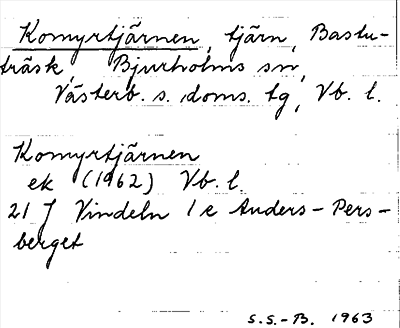 Komyrtjärnen, tjärn, Bastu-
träsk, Bjurholms sn,
Västerb. s. doms. tg, Vb. l.
Komyrtjärnen
ek (1962) Vb. l.
21 J Vindeln 1 e Anders-Pers-
berget
S.S.-B. 1963